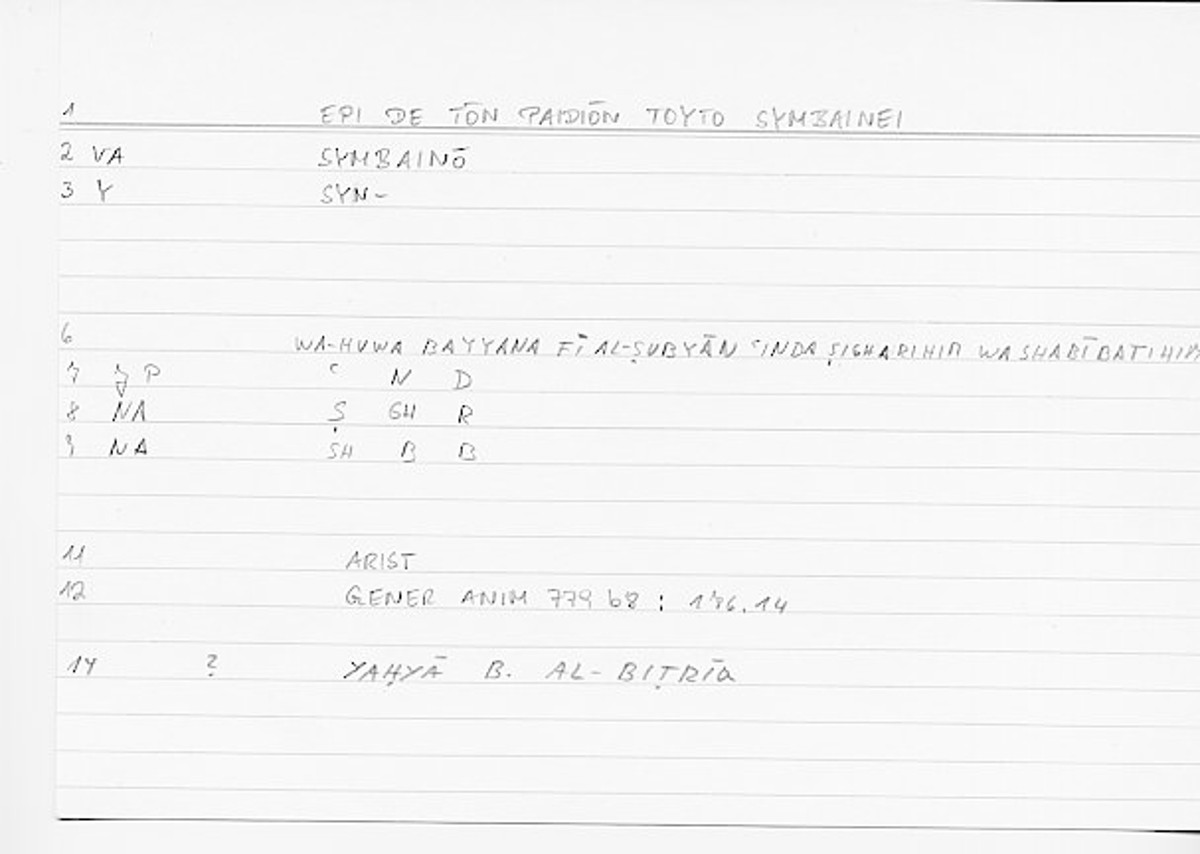 1 EPI DE TŌN PAIDIŌN TOYTO SYMBAINEI
2 VA SYMBAINŌ
3 Y SYN-
6 WA-HUWA BAYYANA FĪ AL-ṢUBYĀN ʿINDA ṢIGHARIHIM WA SHABĪBATIHIM
7 P ʿ N D
8 NA Ṣ GH R
9 NA SH B B
11 ARIST
12 GENER ANIM 779 b8 : 176.14
14 ? YAḤYĀ B. AL-BIṬRĪQ